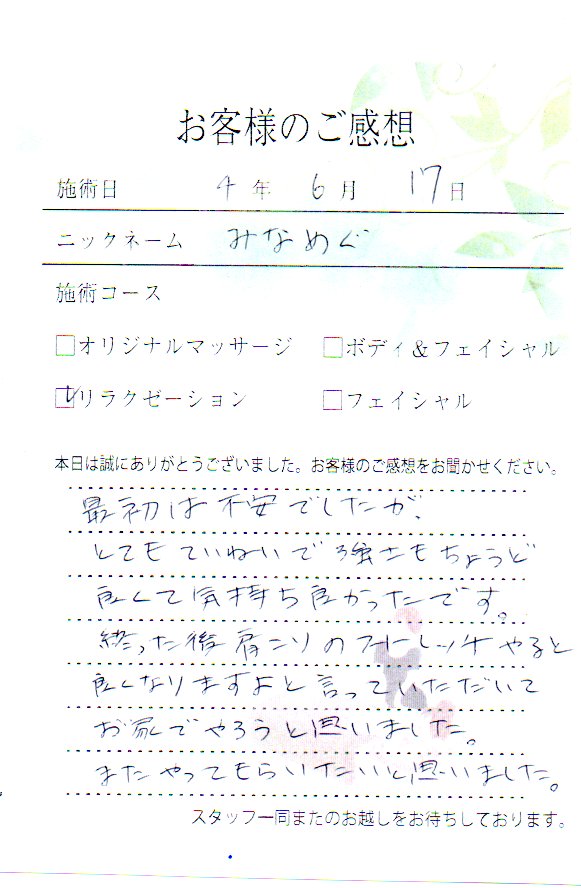 お客様のご感想
施術日 4年 6月 17日
ニックネーム みなめぐ
施術コース
□オリジナルマッサージ □ボディ&フェイシャル
☑リラクゼーション □フェイシャル
本日は誠にありがとうございました。お客様のご感想をお聞かせください。
最初は不安でしたが、
とてもていねいで強さもちょうど
良くて気持ち良かったです。
終った後肩こりのストレッチやると
良くなりますよと言っていただいて
お家でやろうと思いました。
またやってもらいたいと思いました。
スタッフ一同またのお越しをお待ちしております。